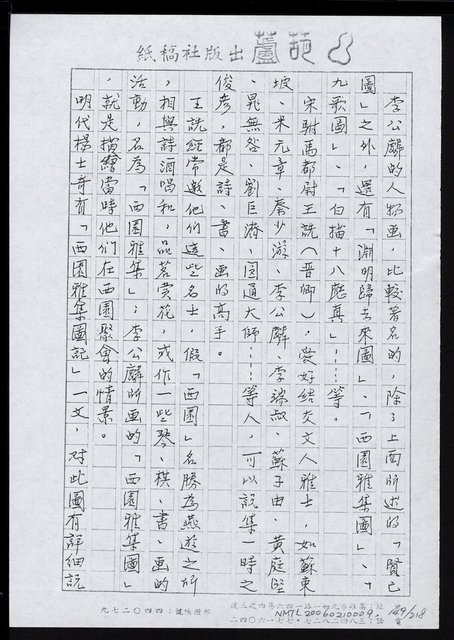 葫蘆出版社稿紙
李公麟的人物画,比較著名的,除了上面所述的「賢己
圖」之外,還有「淵明歸去來圖」、「西園雅集圖」、「
九歌圖」、「白描十八應真」……等。
宋駙馬都尉王詵(晋卿),愛好結交文人雅士,如蘇東
坡、米元章、秦少游、李公麟、李端叔、蘇子由、黄庭堅
、晁無咎、劉巨濟、圓通大師……等人,可以說集一時之
俊彥,都是詩、書、画的高手。
王詵經常邀他們這些名士,假「西園」名勝為燕遊之所
,相與詩酒唱和,品茗賞花,或作一些琴、棋、書、画的
活動,名為「西園雅集」;李公麟所画的「西園雅集圖」
,就是描繪當時他們在西園聚會的情景。
明代楊士奇有「西園雅集圖記」一文,对此圖有詳細說
NMTL20060210009
149/218